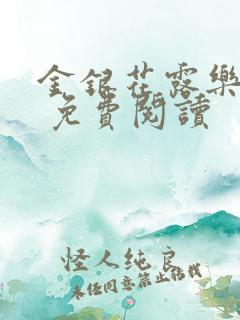 金銀花露樂
免費閱讀
怪人纯良
未经同意禁止转载